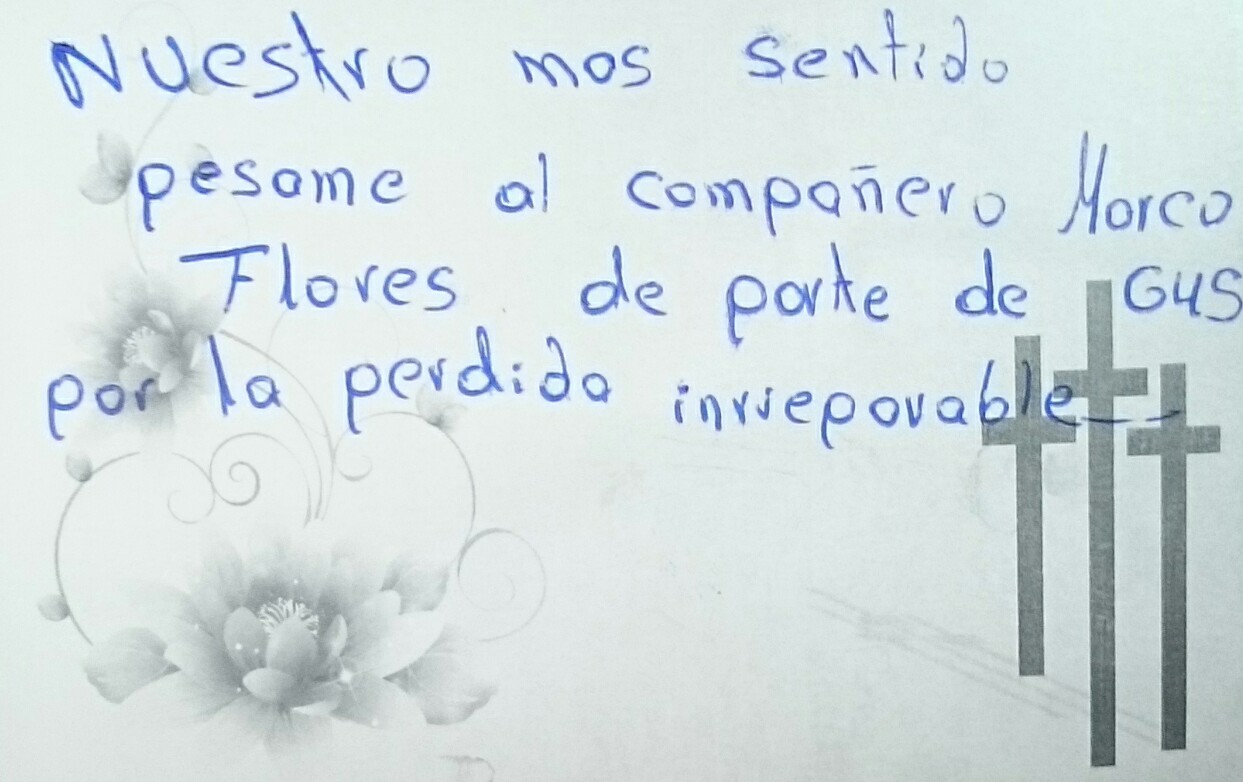 Nuestro mas sentido
pesame al compañero Marco
Flores de parte de GUS
por la perdida inrreparable---